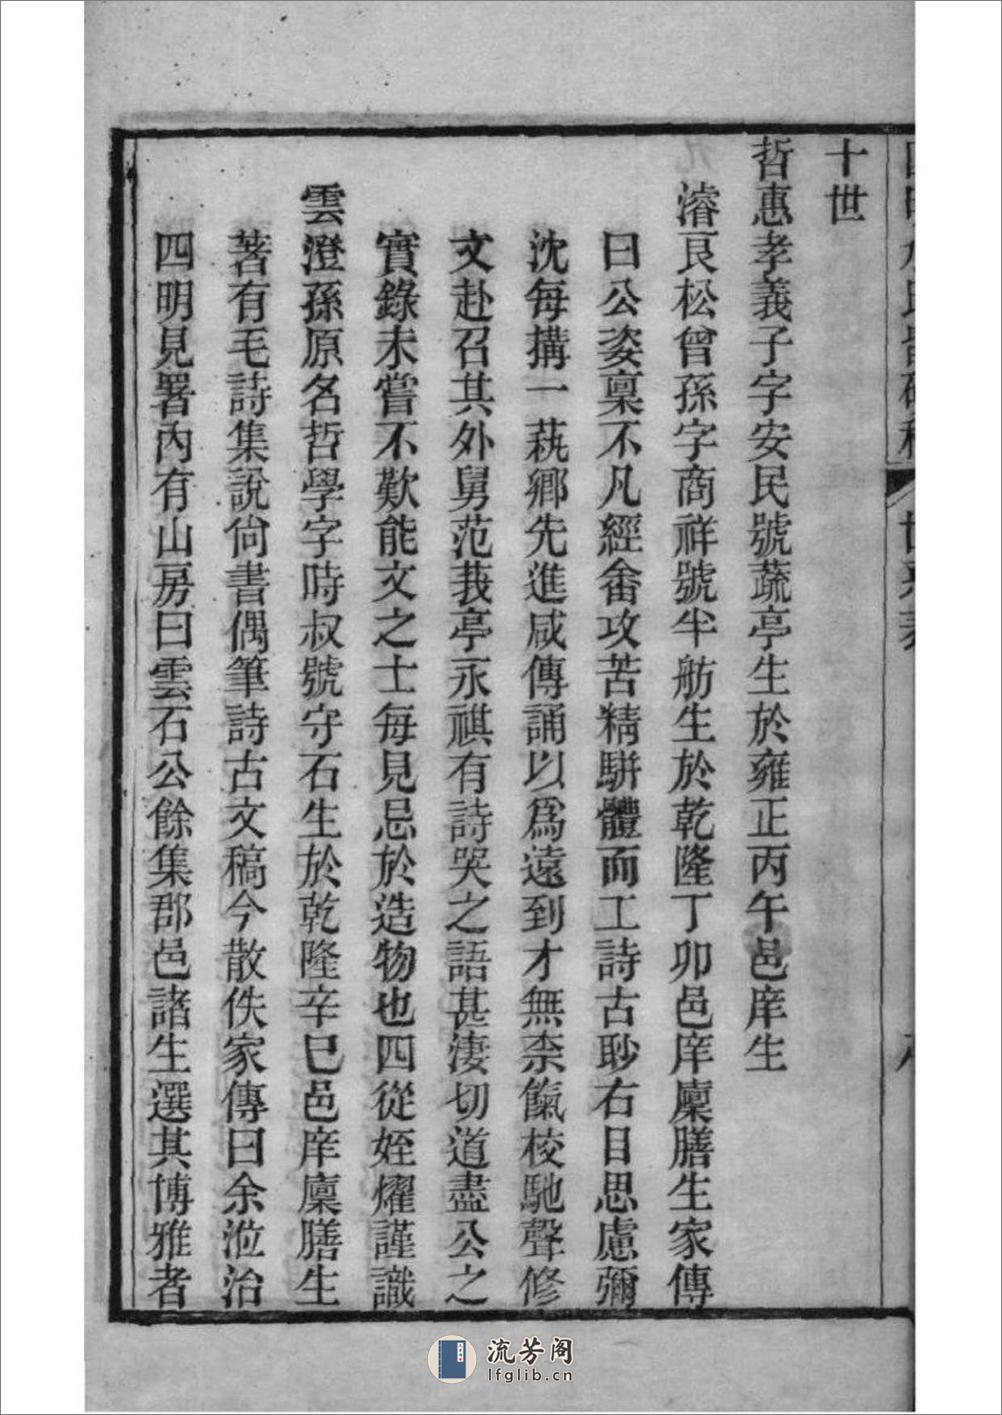 十世
哲惠孝義子字安民號蔬亭生於雍正丙午邑庠生
濬艮松曾孫字商祥號半舫生於乾隆丁卯邑庠廩膳生家傳
曰公姿稟不凡經畬攻苦精駢體而工詩古眇右目思慮彌
沈每搆一萟鄉先進咸傳誦以爲遠到才無柰餼校馳聲修
文赴召其外舅范莪亭永祺有詩哭之語甚淒切道盡公之
實錄未嘗不歎能文之士每見忌於造物也四從姪燿謹識
雲澄孫原名哲學字時叔號守石生於乾隆辛巳邑庠廩膳生
著有毛詩集說尙書偶筆詩古文稿今散佚家傳曰余涖治
四明見署內有山房曰雲石公餘集郡邑諸生選其博雅者
流芳阁
lfglib.cn